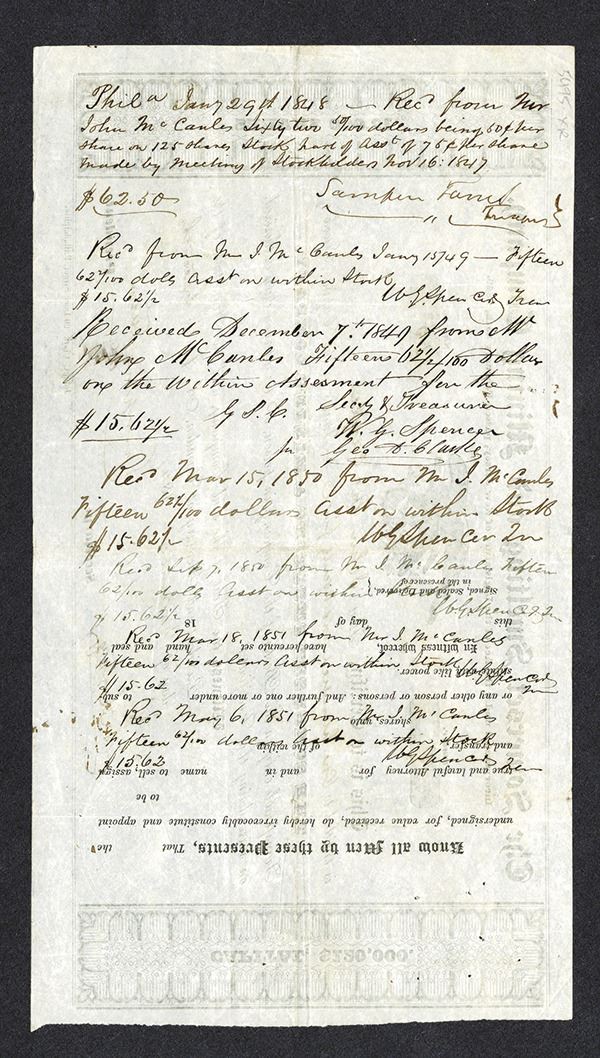 Phila Jany 29th 1848 — Recd from Mr
John McCanles Sixty two 50/100 dollars being 50¢ per
Share on 125 shares Stock part of Asst of 75¢ per share
made by Meeting of Stockholders Nov 16: 1847
$62.50
Recd from Mr J. McCanles Jany 15/49 — Fifteen
62½/100 dolls Asst on within Stock
$15.62½ W.G. Spencer Trea
Received December 7th 1849 from Mr
John McCanles Fifteen 62½/100 Dollars
on the Within Assesment for the
$15.62½ G S. C. Secty & Treasurer
W. G. Spencer
per Geo D. Clarke
Recd Mar 15, 1850 from Mr J. McCanles
Fifteen 62½/100 dollars Asst on within Stock
$15.62½ W G Spencer Trea
Recd Sep 7, 1850 from Mr J. McCanles Fifteen
62½/100 dolls Asst on within
Signed, Sealed and Delivered,
in the presence of
$15.62½ W G Spencer Trea
this day of 18
Recd Mar 18, 1851 from Mr J. McCanles
In witness whereof, have hereunto set hand and seal
Fifteen 62/100 dollars Asst on within Stock W G Spencer
Trea
stitute with like power.
$15.62
or any other person or persons: And further one or more under to sub
Recd May 6, 1851 from Mr J. McCanles
shares, unto
Fifteen 62/100 dollars Asst on within Stock
and transfer of the within
$15.62 W G Spencer Trea
true and lawful Attorney for and in name to sell, assign
to be
undersigned, for value received, do hereby irrevocably constitute and appoint
Know all Men by these Presents, That the
CAPITAL,
5695 XR